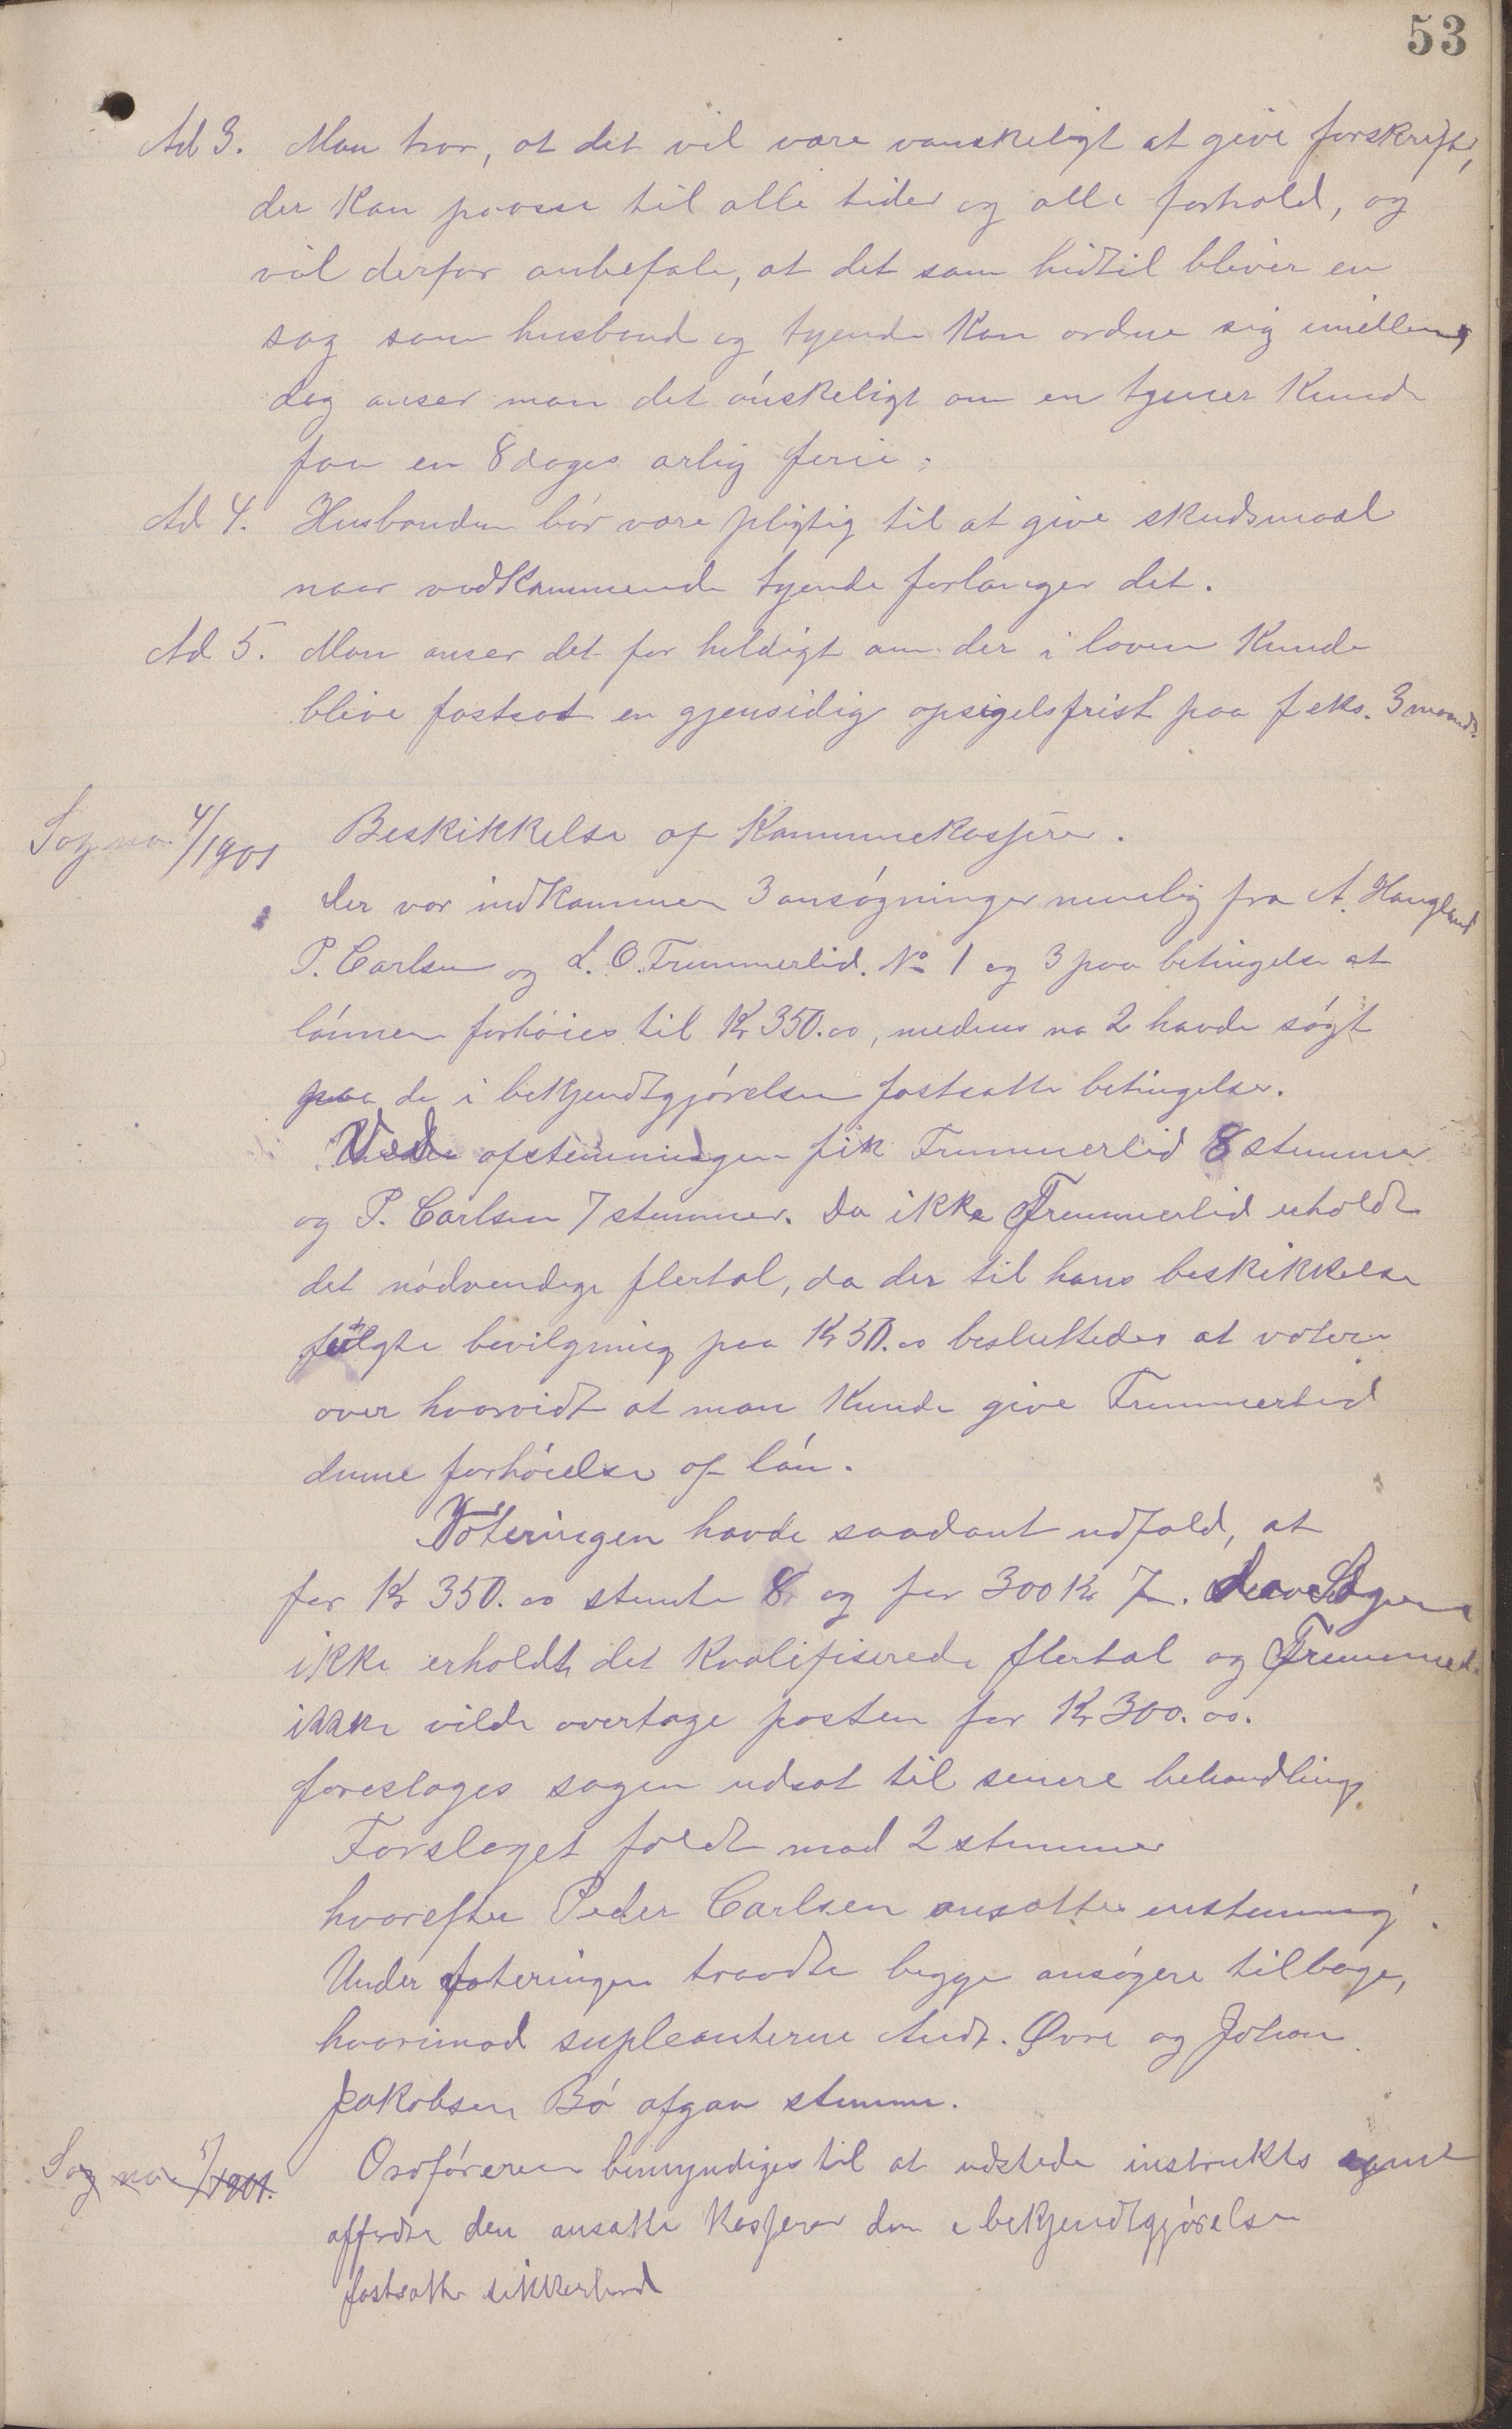 53
Ad 3. Man tror, at det vil være vanskeligt at give forskrifter,
der kan passe til alle tider og alle forhold, og
vil derfor anbefale, at det som hidtil bliver en
sag som husbond og tyende kan ordne sig imellem,
dog anser man det ónskeligt om en tjener kunde
faa en 8 dages arlig ferie.
Ad 4. Husbonden bór være pligtig til at give skudsmaal
naar vedkommende tyende forlanger det.
Ad 5. Man anser det for heldigt om der i loven kunde
blive fastsat en gjensidig opsigelsfrist paa f eks. 3 maand.
Sag no. 4/1901 Beskikkelse af Kommunekasserer.
Der var indkommen 3 ansógninger nemlig fra A. Haugland
P. Carlsen og L. O. Trummerlid. No 1 og 3 paa betingelse at
lónnen forhóies til Kr 350.00, medens no 2 havde sógt
paa de i bekjendtgjórelsen fastsatte betingelser.
Ved afstemningen fik Trummerlid 8 stemmer
og P. Carlsen 7 stemmer. Da ikke Trummerlid erholdt
det nódvendige flertal, da der til hans beskikkelse
fulgte bevilgning paa Kr 50.00 besluttedes at votere
over hvorvidt at man kunde give Trummerlid
denne forhóielse af lón.
Voteringen havde saadant udfald, at
for Kr 350.00 stemte 8 og for 300 Kr 7. Da Sagen
ikke erholdt det kvalifiserede flertal og Trummerl.
ikke vilde overtage posten for Kr 300.00.
foreslages sagen udsat til senere behandling.
Forslaget faldt mod 2 stemmer
hvorefter Peder Carlsen ansattes enstemmig.
Under voteringen traadte begge ansógere tilbage,
hvorimod supleanterne Andr. Øvre og Johan
Jakobsen Bó afgav stemme.
Sag no 5/1901. Ordfóreren bemyndiges til at udstede instruks samt
affordre den ansatte kasserer den i bekjendtgjórelsen
fastsatte sikkerhed